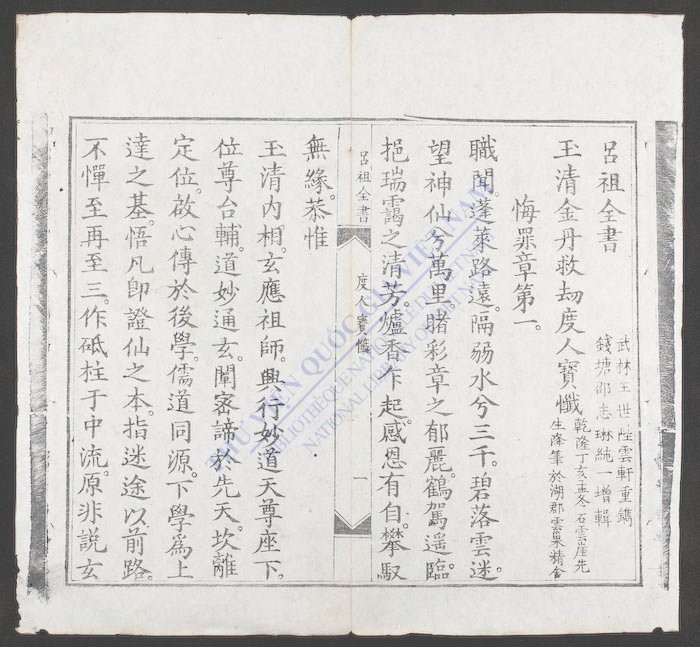 呂祖全書
武林王世陞雲軒重鐫
錢塘邵志琳純一增輯
玉清金丹救劫度人寶懺
乾隆丁亥孟冬石雲崖先
生降筆於湖郡雲巢精舍
悔罪章第一。
職聞。蓬萊路遠。隔弱水兮三千。碧落雲迷。
望神仙兮萬里。睹彩章之郁麗。鶴駕遙臨。
挹瑞靄之清芳。爐香乍起。感恩有自。攀馭
呂祖全書
度人寶懺
一
無緣。恭惟
玉清內相。玄應祖師。興行妙道天尊座下。
位尊台輔。道妙通玄。闡密諦於先天。坎離
定位。啟心傳於後學。儒道同源。下學爲上
達之基。悟凡卽證仙之本。指迷途以前路。
不憚至再至三。作砥柱于中流。原非説玄
THƯ VIỆN QUỐC GIA VIỆT NAM
BIBLIOTHÈQUE NATIONALE DU VIETNAM
NATIONAL LIBRARY OF VIETNAM